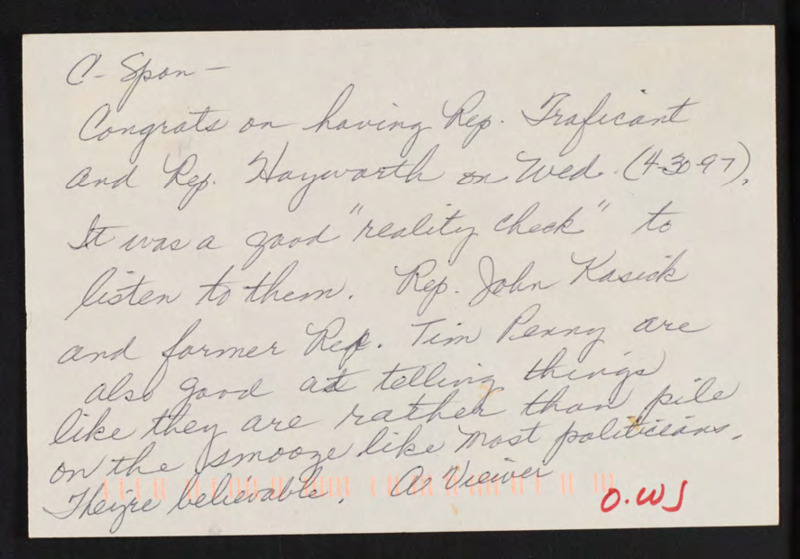 C-Span -
Congrats on having Rep. Traficant
and Rep. Hayworth on Wed. (4-30-97).
It was a good "reality check" to
listen to them. Rep. John Kasick
and former Rep. Tim Penny are
also good at telling things
like they are rather than pile
on the smooze like most politicians.
They're believable. A Viewer
O.WJ